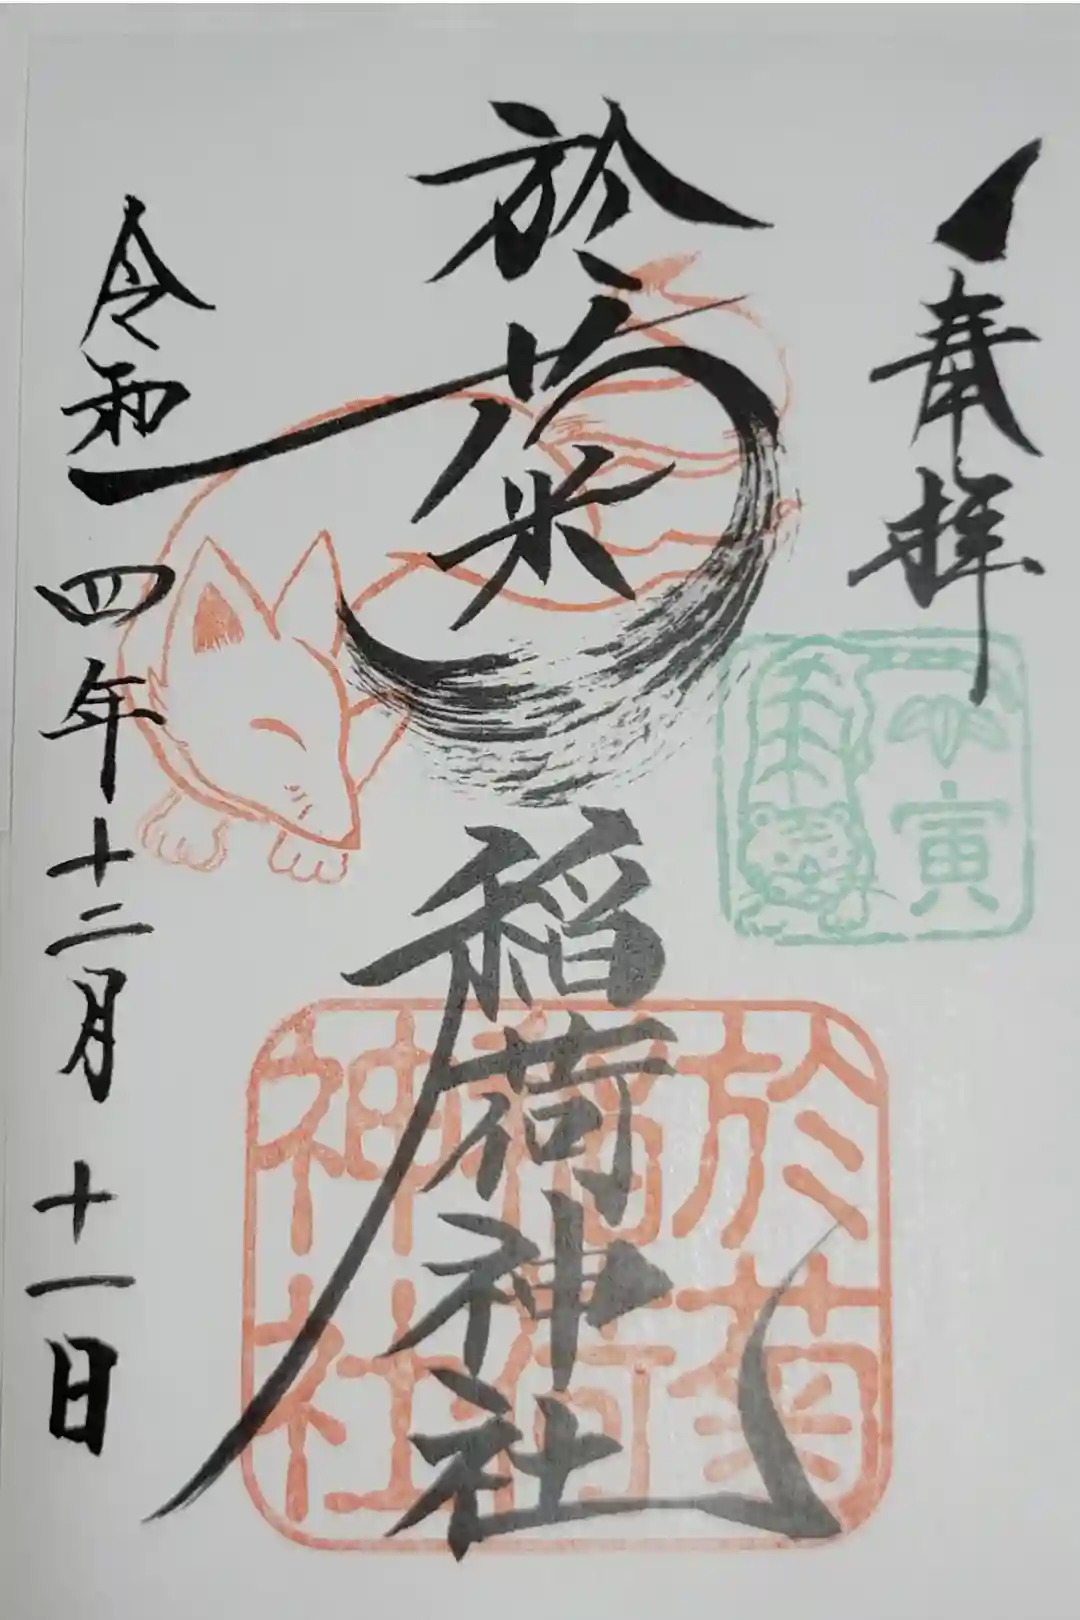 奉拝
於菊稲荷神社
令和四年十二月十一日
寅
於菊
稲荷
神社